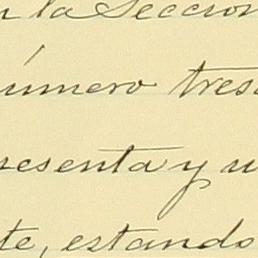 n la Seccion
número tres
resenta y u
te, estando